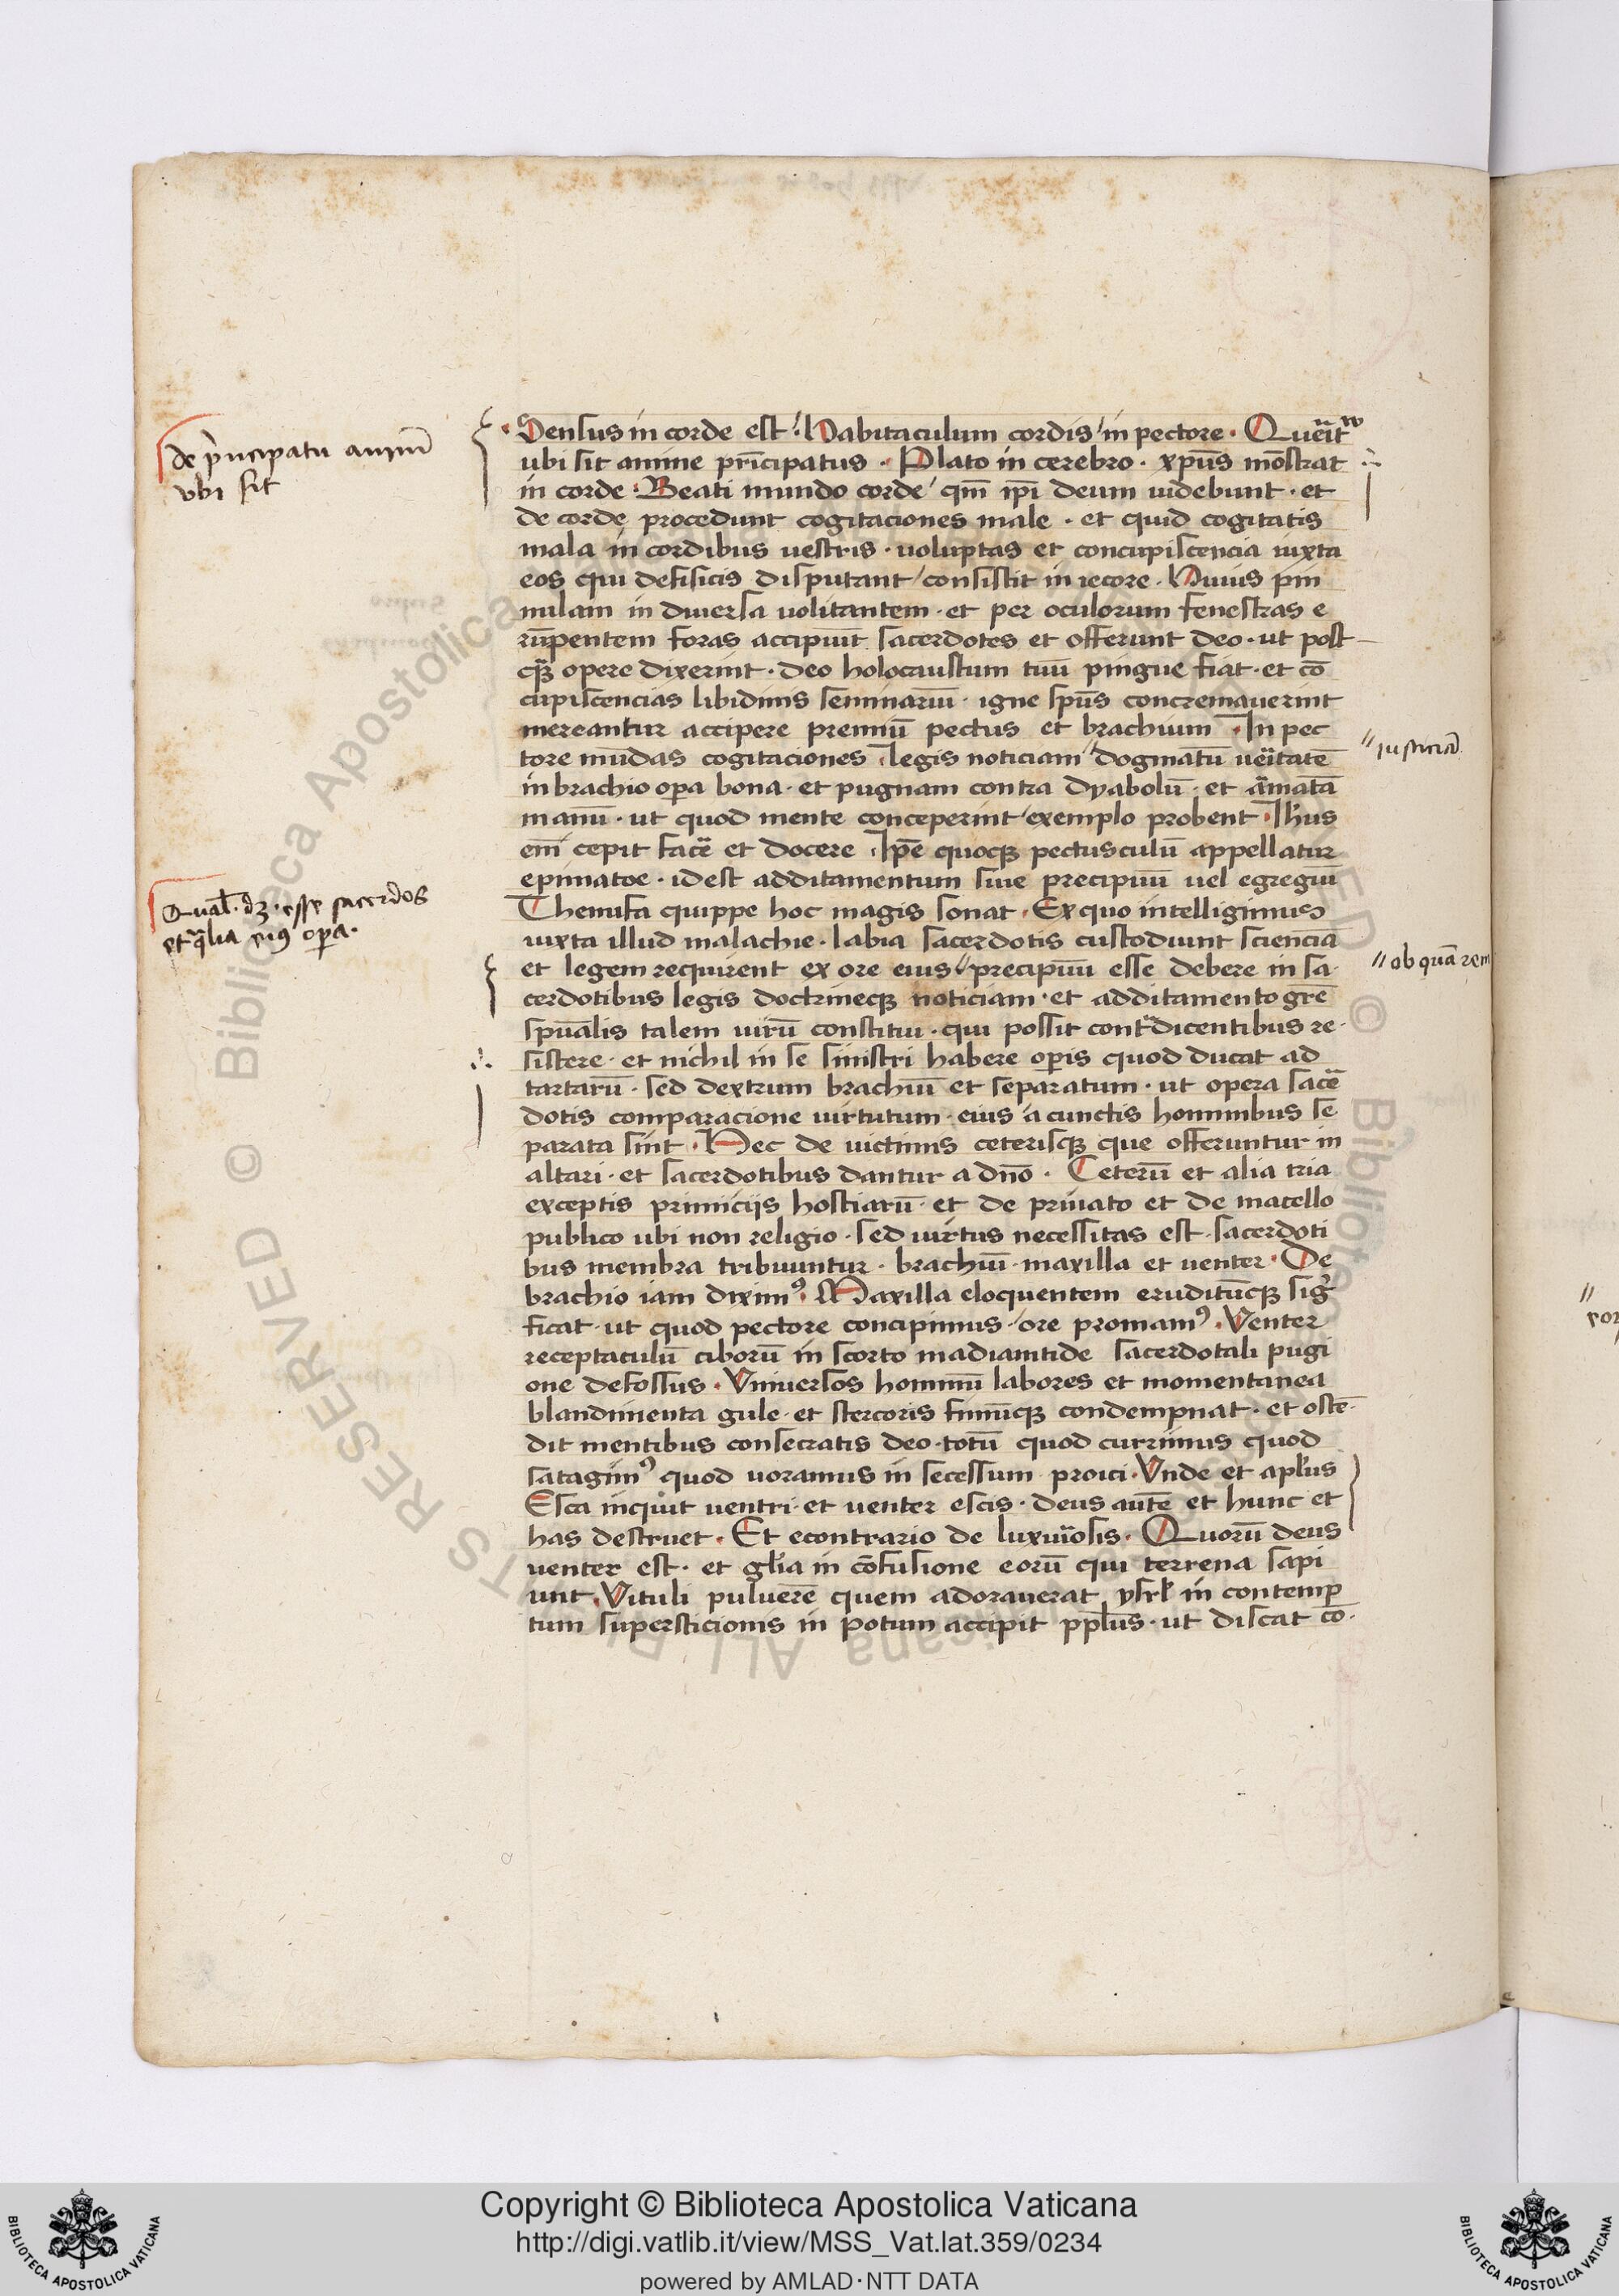 de pͥncipatu animͤ
vbi sit
Sensus in corde est. Habitaculum cordis in pectore. Querit᷑
ubi sit anime pͥncipatus. Plato in cerebro. xp̄us mōstrat
in corde. Beati mundo corde qm̄ ip̄i deum uidebunt. et
de corde procedunt cogitaciones male. et quid cogitatis
mala in cordibus uestris. uoluptas et concupiscencia iuxta
eos qui defisicis disputant consistit in iecore. Huius pīn
nulam in diuersa uolitantem. et per oculorum fenestras e
rūpentem foras accipiūt sacerdotes et offerunt deo. ut post
q̄ꝫ opere dixerint. deo holocaustum tuū pingue fiat. et cō
cupiscencias libidinis seminariū. igne sp̄us concremauerint
mereantur accipere premiū pectus et brachium. In pec
tore mūdas cogitaciones legis noticiam dogmatū ueritatē
iusticiā
in brachio oꝑa bona. et pugnam contra dyabolū. et armatā
manū. ut quod mente conceperint exemplo probent. Ih̄us
em̄ cepit facere et docere. Ip̄e quoqꝫ pectusculū appellatur
epimatoe. idest additamentum siue precipuū uel egregiū
Qualꝭ. dꝫ. esse sacerdos
et q̄lia eiꝰ oꝑa.
Thenufa quippe hoc magis sonat. Ex quo intelligimus
iuxta illud malachie. labia sacerdotis custodiunt scienciā
et legem requirent ex ore eius precipuū esse debere in sa
ob quā rem
cerdotibus legis doctrineqꝫ noticiam. et additamento gr̄e
sp̄ualis talem uirū constitui. qui possit contᵃdicentibus re
sistere. et nichil in se sinistri habere oꝑis quod ducat ad
tartarū. sed dextrum brachiū et separatum. ut opera sacer
dotis comparacione uirtutum eius a cunctis hominibus se
parata sint. Hec de uictimis ceterisqꝫ que offeruntur in
altari. et sacerdotibus dantur a dn̄o. Ceterū et alia tria
exceptis primicijs hostiarū. et de priuato et de macello
publico ubi non religio. sed uirtus necessitas est. sacerdoti
bus membra tribuuntur. brachiū. maxilla et uenter. De
brachio iam diximꝰ. Maxilla eloquentem eruditūqꝫ sig
ficat. ut quod pectore concipimus ore promamꝰ. Venter
receptaculū ciborū in scorto madianitide sacerdotali pugi
one defossus. Vniuersos hominū labores et momentanea
blandimenta gule. et stercoris finiūqꝫ condempnat. et ostē
dit mentibus consecratis deo. totū quod currimus quod
satagimꝰ quod uoramus in secessum proici. Vnde et apl̄us
Esca inquit uentri. et uenter escis. deus autē et hunc et
has destruet. Et econtrario de luxuriosis. Quorū deus
uenter est. et gl̄ia in cōfusione eorū qui terrena sapi
unt. Vituli puluerē quem adorauerat ysrl̄ in contemp
tum supersticionis in potum accipit pp̄lus. ut discat cō
Copyright © Biblioteca Apostolica Vaticana
http://digi.vatlib.it/view/MSS_Vat.lat.359/0234
powered by AMLAD·NTT DATA